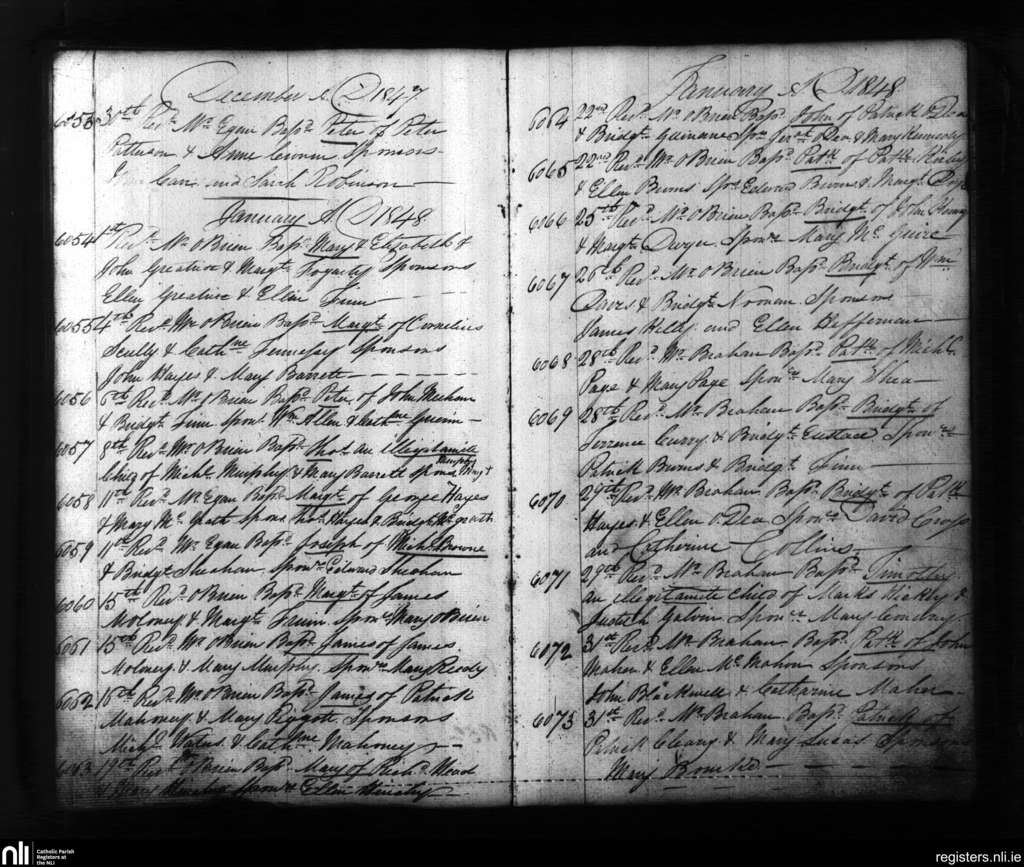 December A D 1847
6053 31th Revd. Mr Egan Bapd. Peter of Peter
Patterson & Anne Sponsors
John and Sarah Robinson
January A D 1848
6054 1th Revd. Mr O'Brien Bapd. Mary & Elizabeth of
John Greatine & Margt. Fogarty Sponsons
Ellen Greatine & Ellen Finn
6055 4th Revd. Mr O'Brien Bapd. Margt. of Cornelius
Scully & Cathne Fennessy Sponsons
John Hayes & Mary Barrett
6056 6th Revd. Mr O'Brien Bapd. Peter of John Meehan
& Bridgt. Finn Spons. Wm. Allen & Cathne
6057 8th Revd. Mr O'Brien Bapd. Thos. an illegitamite
Child of Michl. Murphy & Mary Barrett Spons. Margt
Murphy
6058 11th Revd. Mr Egan Bapd. Margt. of George Hayes
& Mary Mc Grath Spons. Thos. Hayes & Bridgt. McGrath
6059 11th Revd. Mr Egan Bapd. Joseph of Michl. Browne
& Bridgt. Sheahan Sponr. Edward Sheahan
6060 15th Revd. O'Brien Bapd. Margt. of James
Moloney & Margt. Sponr. Mary O'Brien
6061 15th Revd. Mr O'Brien Bapd. James of James
Moloney & Mary Murphy Sponr.
6062 16th Revd. Mr O'Brien Bapd. James of Patrick
Mahoney & Mary Piggott Sponsons
Michl. & Cathne Mahoney
6063 19th Revd. O'Brien Bapd. Mary of Richd. Mead
& Mary Sponr. Ellen
January A D 1848
6064 22nd Revd. Mr O'Brien Bapd. John of Patrick O'Dea
& Bridgt. Guinane Spon. Dea & Mary Kennedy
6065 22nd Revd. Mr O'Brien Bapd. Patk. of Patk.
& Ellen Burns Spos. Edward Burns & Margt.
6066 25th Revd. Mr O'Brien Bapd. Bridgt. of John
& Margt. Dwyer Sponr. Mary Mc Guire
6067 26th Revd. Mr O'Brien Bapd. Bridgt. of Wm
Davis & Bridgt. Noonan Sponsons
James Kelly and Ellen Heffernan
6068 28th Revd. Mr Beahan Bapd. Patk. of Michl.
Page & Mary Page Sponr. Mary Shea
6069 28th Revd. Mr Beahan Bapd. Bridgt. of
Terrence Curry & Bridgt. Eustace Sponrs
Patrick Burns & Bridgt. Finn
6070 29th Revd. Mr Beahan Bapd. Bridgt. of Patk.
Hayes & Ellen O'Dea Sponrs David Cross
and Catherine Collins
6071 29th Revd. Mr Beahan Bapd. Timothy
an illegitamite Child of Marks Hickey &
Judith Galvin Sponr. Mary Conboy
6072 31st Revd. Mr Beahan Bapd. Patk. of John
Maher & Ellen Mc Mahon Sponsons
John Blackwell & Catharine Maher
6073 31st Revd. Mr Beahan Bapd. Patrick of
Patrick Cleary & Mary Lucas Sponsons
Mary
nli Catholic Parish
Registers at
the NLI
registers.nli.ie